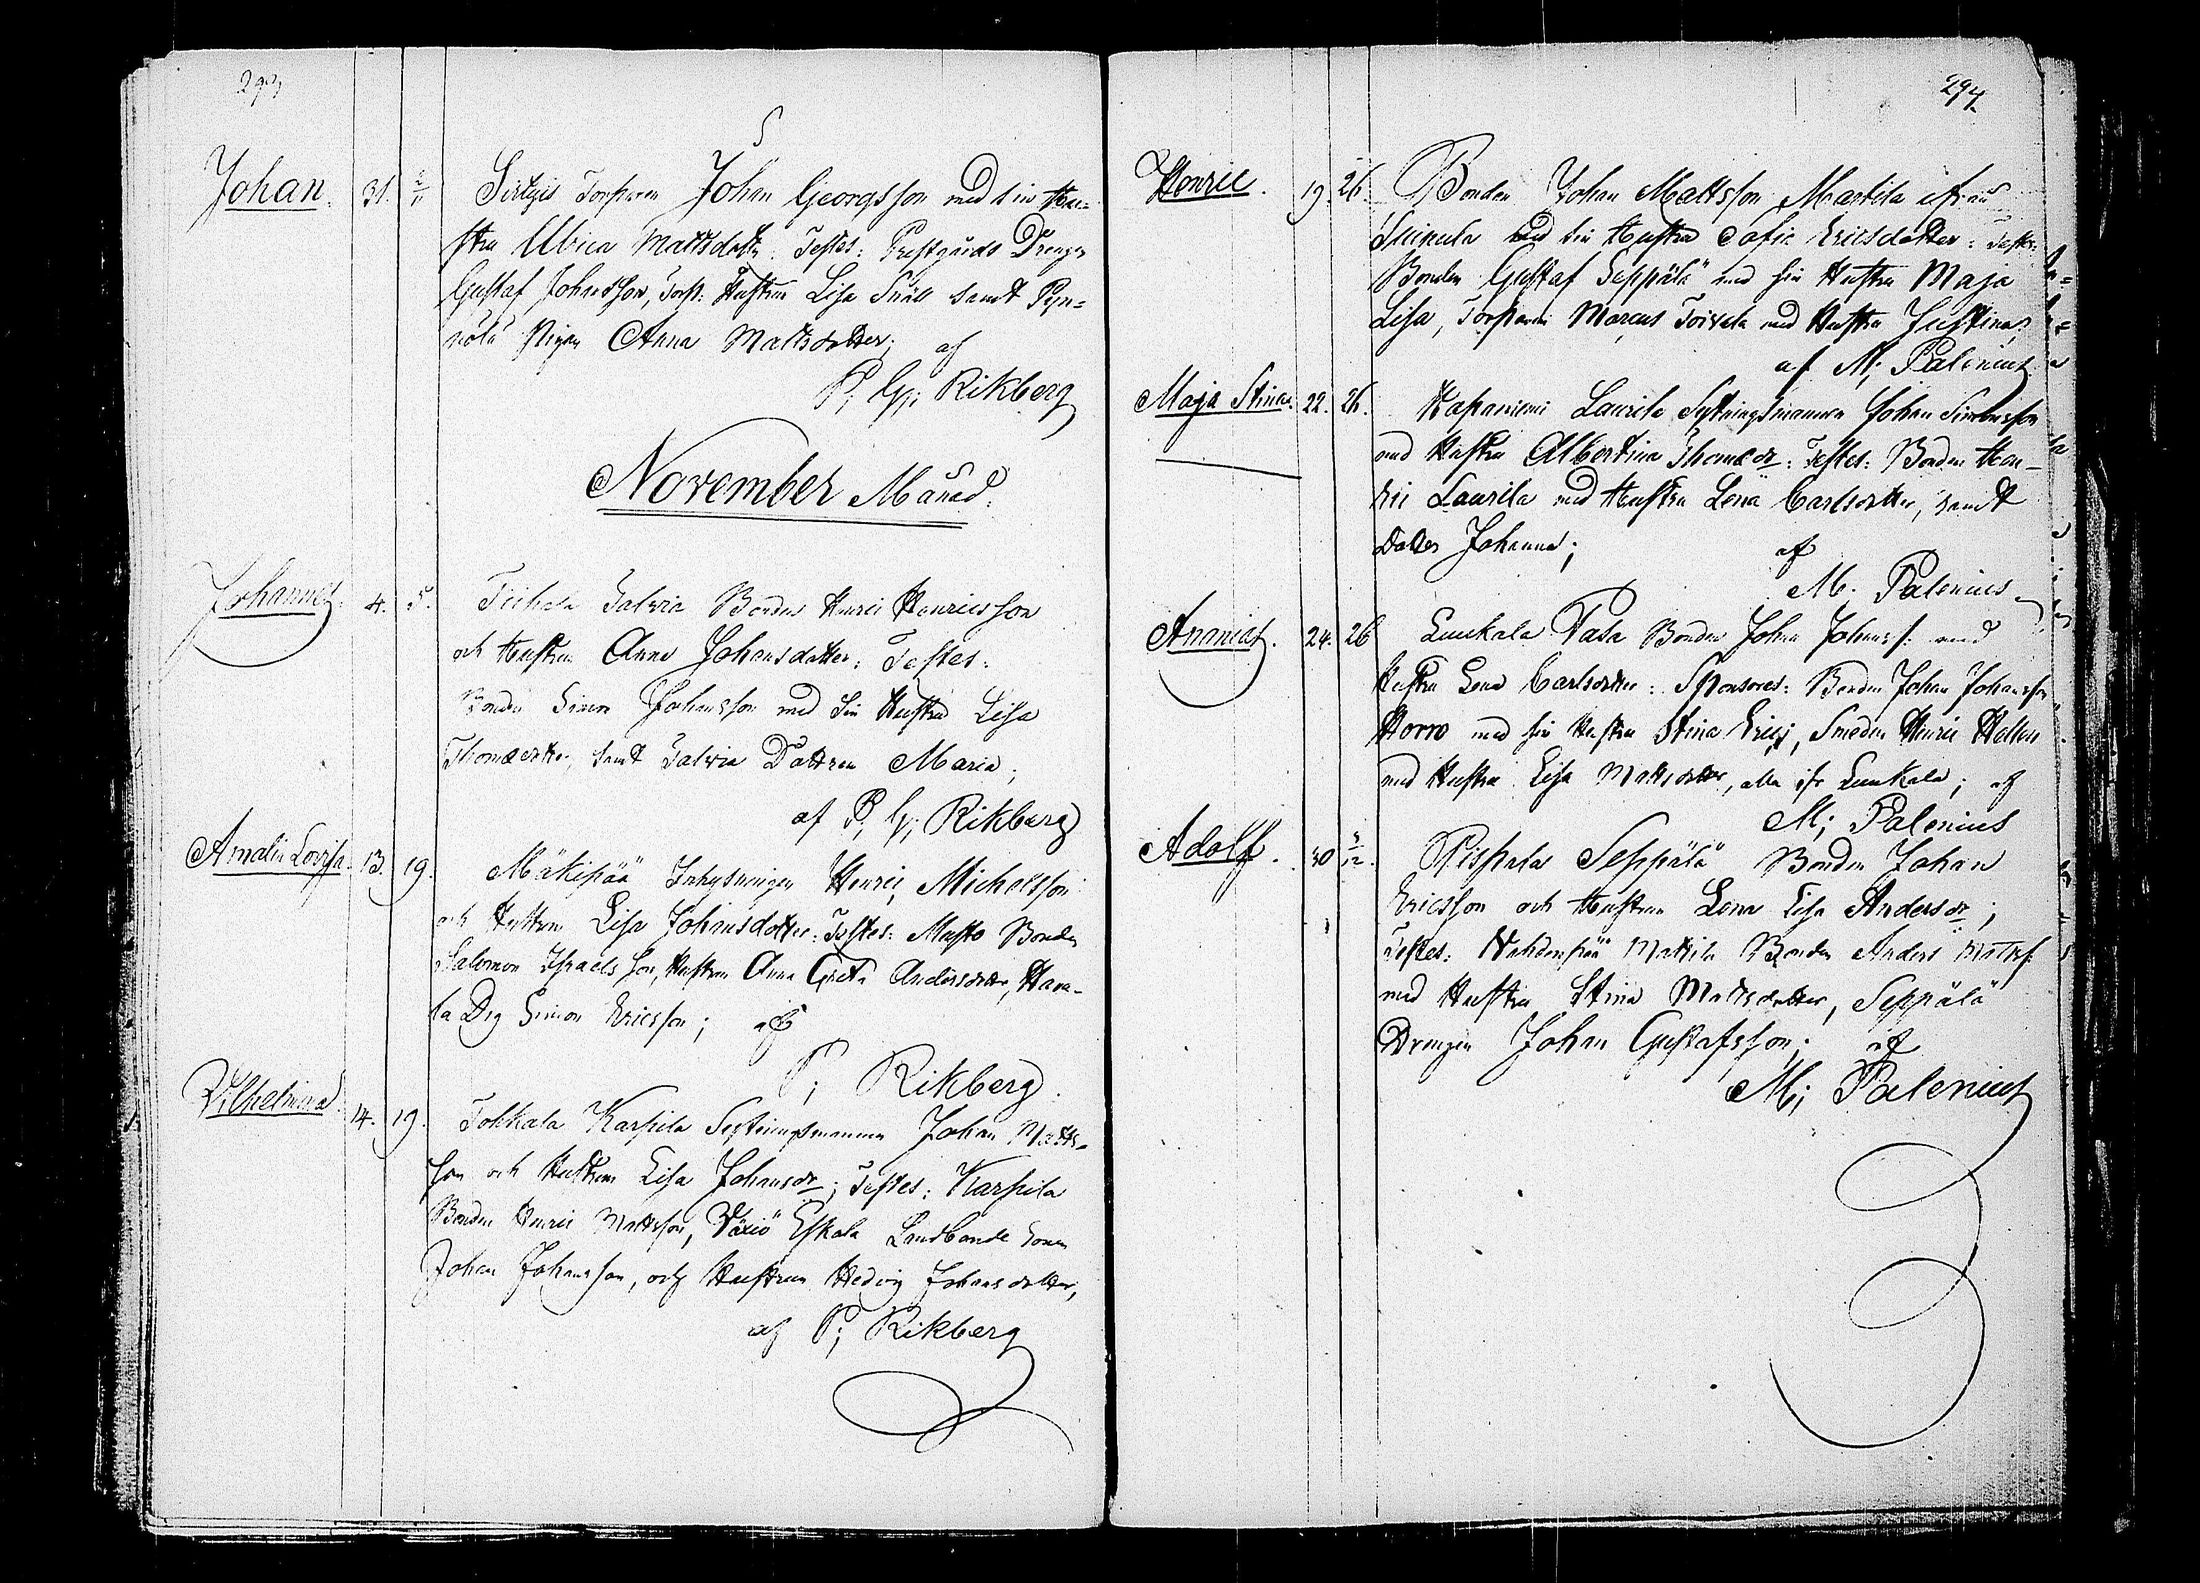 293
Johan. 31. 2/11 Torparen Johan Georgsson med sin Hu=
stru Ulrica Mattsdotter. Testes: Prestgårds Drengen
Gustaf Johansson, Torp: Hustrun Lisa samt Pyn=
nölä Pigan Anna Mattsdotter; af
P; G; Rikberg
November Månad.
Johannes. 4. 5. Salvia Bonden Henric Henricsson
och Hustrun Anna Johansdotter: Testes:
Bonden Simon Johansson med sin Hustru Lisa
Thomædotter, samt Salvia Dottren Maria;
af P; G; Rikberg
Amalia Lovisa. 13. 19. Mäkipää Inhysningen Henric Michelsson
och Hustrun Lisa Johansdotter: Testes: Musto Bonden
Salomon Israelsson, Hustrun Anna Greta Andersdotter,
Drg Simon Ericsson; af
P; Rikberg.
Vilhelmina. 14. 19. Tokkala Karpila Sytningsmannen Johan Matts-
son och Hustrun Lisa Johansdr; Testes: Karpila
Bonden Henric Mattsson, Eskola Landbonde Sonen
Johan Johansson, och Hustrun Hedvig Johansdotter,
af P; Rikberg
294.
Henric. 19. 26. Bonden Johan Mattsson Martila ifrån
med sin Hustru Sofia Ericsdotter: Testes:
Bonden Gustaf Seppälä med sin Hustru Maja
Lisa, Torparen Marcus Toivola med Hustru Justina;
af M; Palenius.
Maja Stina. 22. 26. Hapaniemi Laurila Sytningsmannen Johan Simonsson
med Hustru Albertina Thomædr: Testes: Bonden Hen-
ric Laurila med Hustru Lena Carlsdotter, samt
Dotter Johanna; af
M. Palenius
Ananias. 24. 26 Luukala Bonden Johan Johanss: med
Hustru Lena Carlsdotter: Sponsores: Bonden Johan Johansson
Horro med sin Hustru Stina Ericsj, Smeden Henric
med Hustru Lisa Mattsdotter, alla ifr Luukala; af
M; Palenius
Adolf. 30 3/12. Pispala Seppälä Bonden Johan
Ericsson och Hustrun Lena Lisa Andersdr;
Testes: Mattila Bonden Anders Mattss:
med Hustru Stina Mattsdotter, Seppälä
Drengen Johan Gustafsson; af
M; Palenius